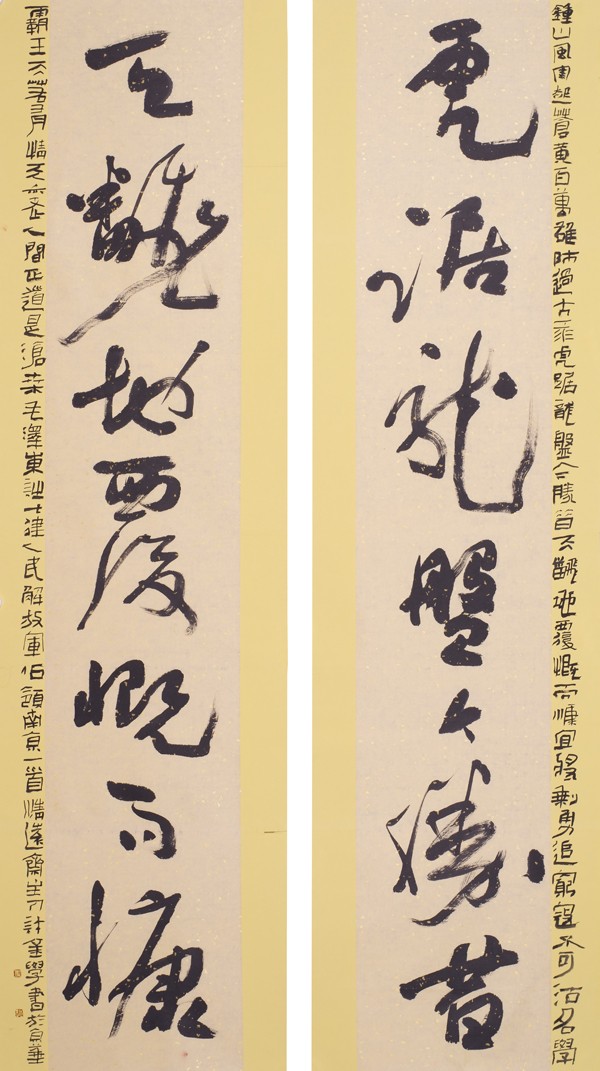 鍾山風雨起蒼黃百萬雄師過大江虎踞龍盤今勝昔天翻地覆慨而慷宜將剩勇追窮寇不可沽名學
虎踞龍盤今勝昔
天翻地覆慨而慷
霸王天若有情天亦老人間正道是滄桑毛澤東詩七律人民解放軍佔領南京一首清遠齋主人計金學書於京華